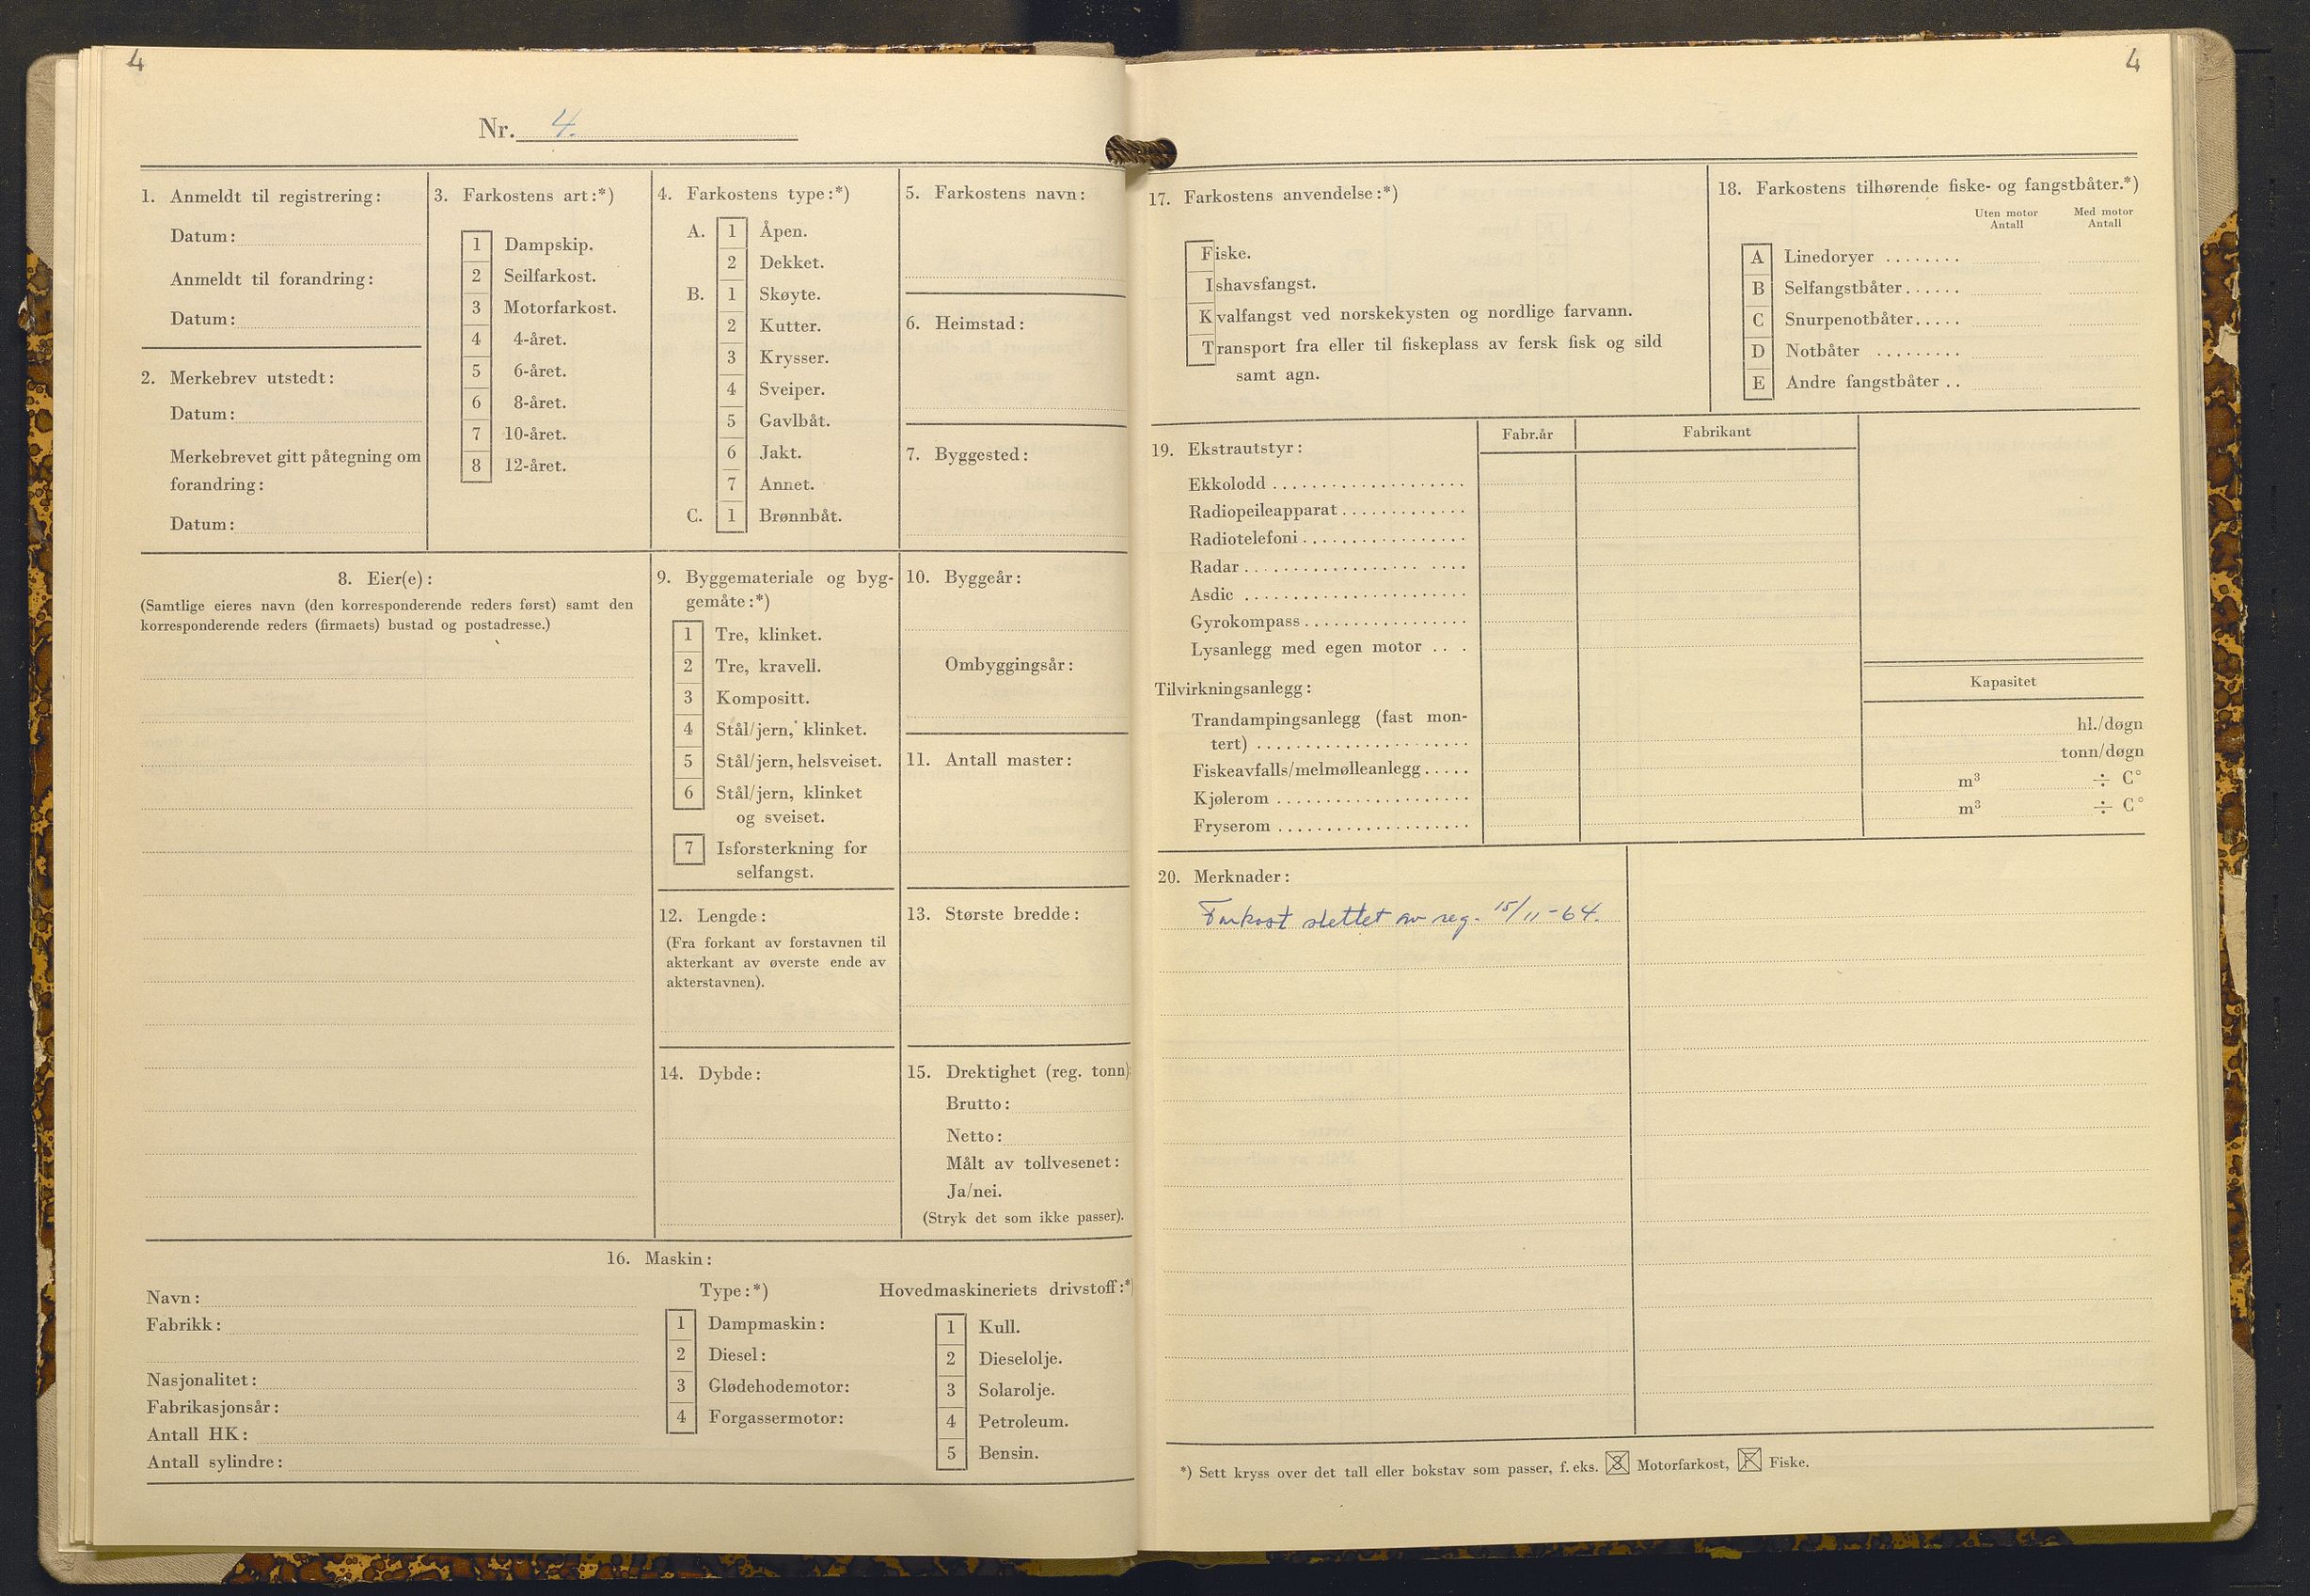 4
Nr. 4.
1. Anmeldt til registrering:
Datum:
Anmeldt til forandring:
Datum:
2. Merkebrev utstedt:
Datum:
Merkebrevet gitt påtegning om
forandring:
Datum:
3. Farkostens art:*)
1 Dampskip.
2 Seilfarkost.
3 Motorfarkost.
4 4-året.
5 6-året.
6 8-året.
7 10-året.
8 12-året.
4. Farkostens type:*)
A. 1 Åpen.
2 Dekket.
B. 1 Skøyte.
2 Kutter.
3 Krysser.
4 Sveiper.
5 Gavlbåt.
6 Jakt.
7 Annet.
C. 1 Brønnbåt.
5. Farkostens navn:
6. Heimstad:
7. Byggested:
8. Eier(e):
(Samtlige eieres navn (den korresponderende reders først) samt den
korresponderende reders (firmaets) bustad og postadresse.)
9. Byggemateriale og byg-
gemåte:*)
1 Tre, klinket.
2 Tre, kravell.
3 Kompositt.
4 Stål/jern, klinket.
5 Stål/jern, helsveiset.
6 Stål/jern, klinket
og sveiset.
7 Isforsterkning for
selfangst.
10. Byggeår:
Ombyggingsår:
11. Antall master:
12. Lengde:
(Fra forkant av forstavnen til
akterkant av øverste ende av
akterstavnen).
13. Største bredde:
14. Dybde:
15. Drektighet (reg. tonn):
Brutto:
Netto:
Målt av tollvesenet:
Ja/nei.
(Stryk det som ikke passer).
16. Maskin:
Navn:
Fabrikk:
Nasjonalitet:
Fabrikasjonsår:
Antall HK:
Antall sylindre:
Type:*)
1 Dampmaskin:
2 Diesel:
3 Glødehodemotor:
4 Forgassermotor:
Hovedmaskineriets drivstoff:*)
1 Kull.
2 Dieselolje.
3 Solarolje.
4 Petroleum.
5 Bensin.
4
17. Farkostens anvendelse:*)
Fiske.
Ishavsfangst.
Kvalfangst ved norskekysten og nordlige farvann.
Transport fra eller til fiskeplass av fersk fisk og sild
samt agn.
18. Farkostens tilhørende fiske- og fangstbåter.*)
Uten motor Med motor
Antall Antall
A Linedoryer ........
B Selfangstbåter......
C Snurpenotbåter.....
D Notbåter .........
E Andre fangstbåter ..
19. Ekstrautstyr: Fabr.år Fabrikant
Ekkolodd ....................
Radiopeileapparat .............
Radiotelefoni .................
Radar ......................
Asdic .......................
Gyrokompass .................
Lysanlegg med egen motor ...
Tilvirkningsanlegg: Kapasitet
Trandampingsanlegg (fast mon-
tert) ...................... hl./døgn
Fiskeavfalls/melmølleanlegg ..... tonn/døgn
Kjølerom .................... m³ ÷ C°
Fryserom .................... m³ ÷ C°
20. Merknader:
Farkost slettet av reg. 15/11-64.
*) Sett kryss over det tall eller bokstav som passer, f. eks. 3 Motorfarkost, F Fiske.